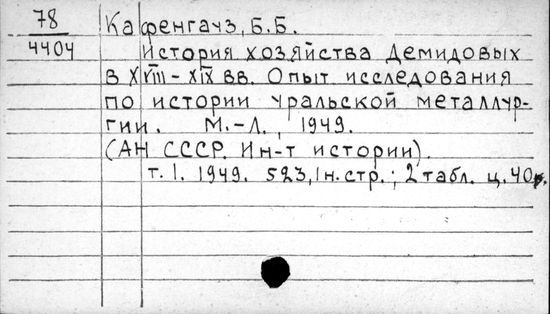 78 Кафенгауз, Б.Б.
4404 История хозяйства Демидовых
в XVIII-XIX вв. Опыт исследования
по истории уральской металлур-
гии. М.-Л., 1949.
(АН СССР. Ин-т истории).
т. 1. 1949. 523, 1н. стр.; 2 табл. ц. 40р.